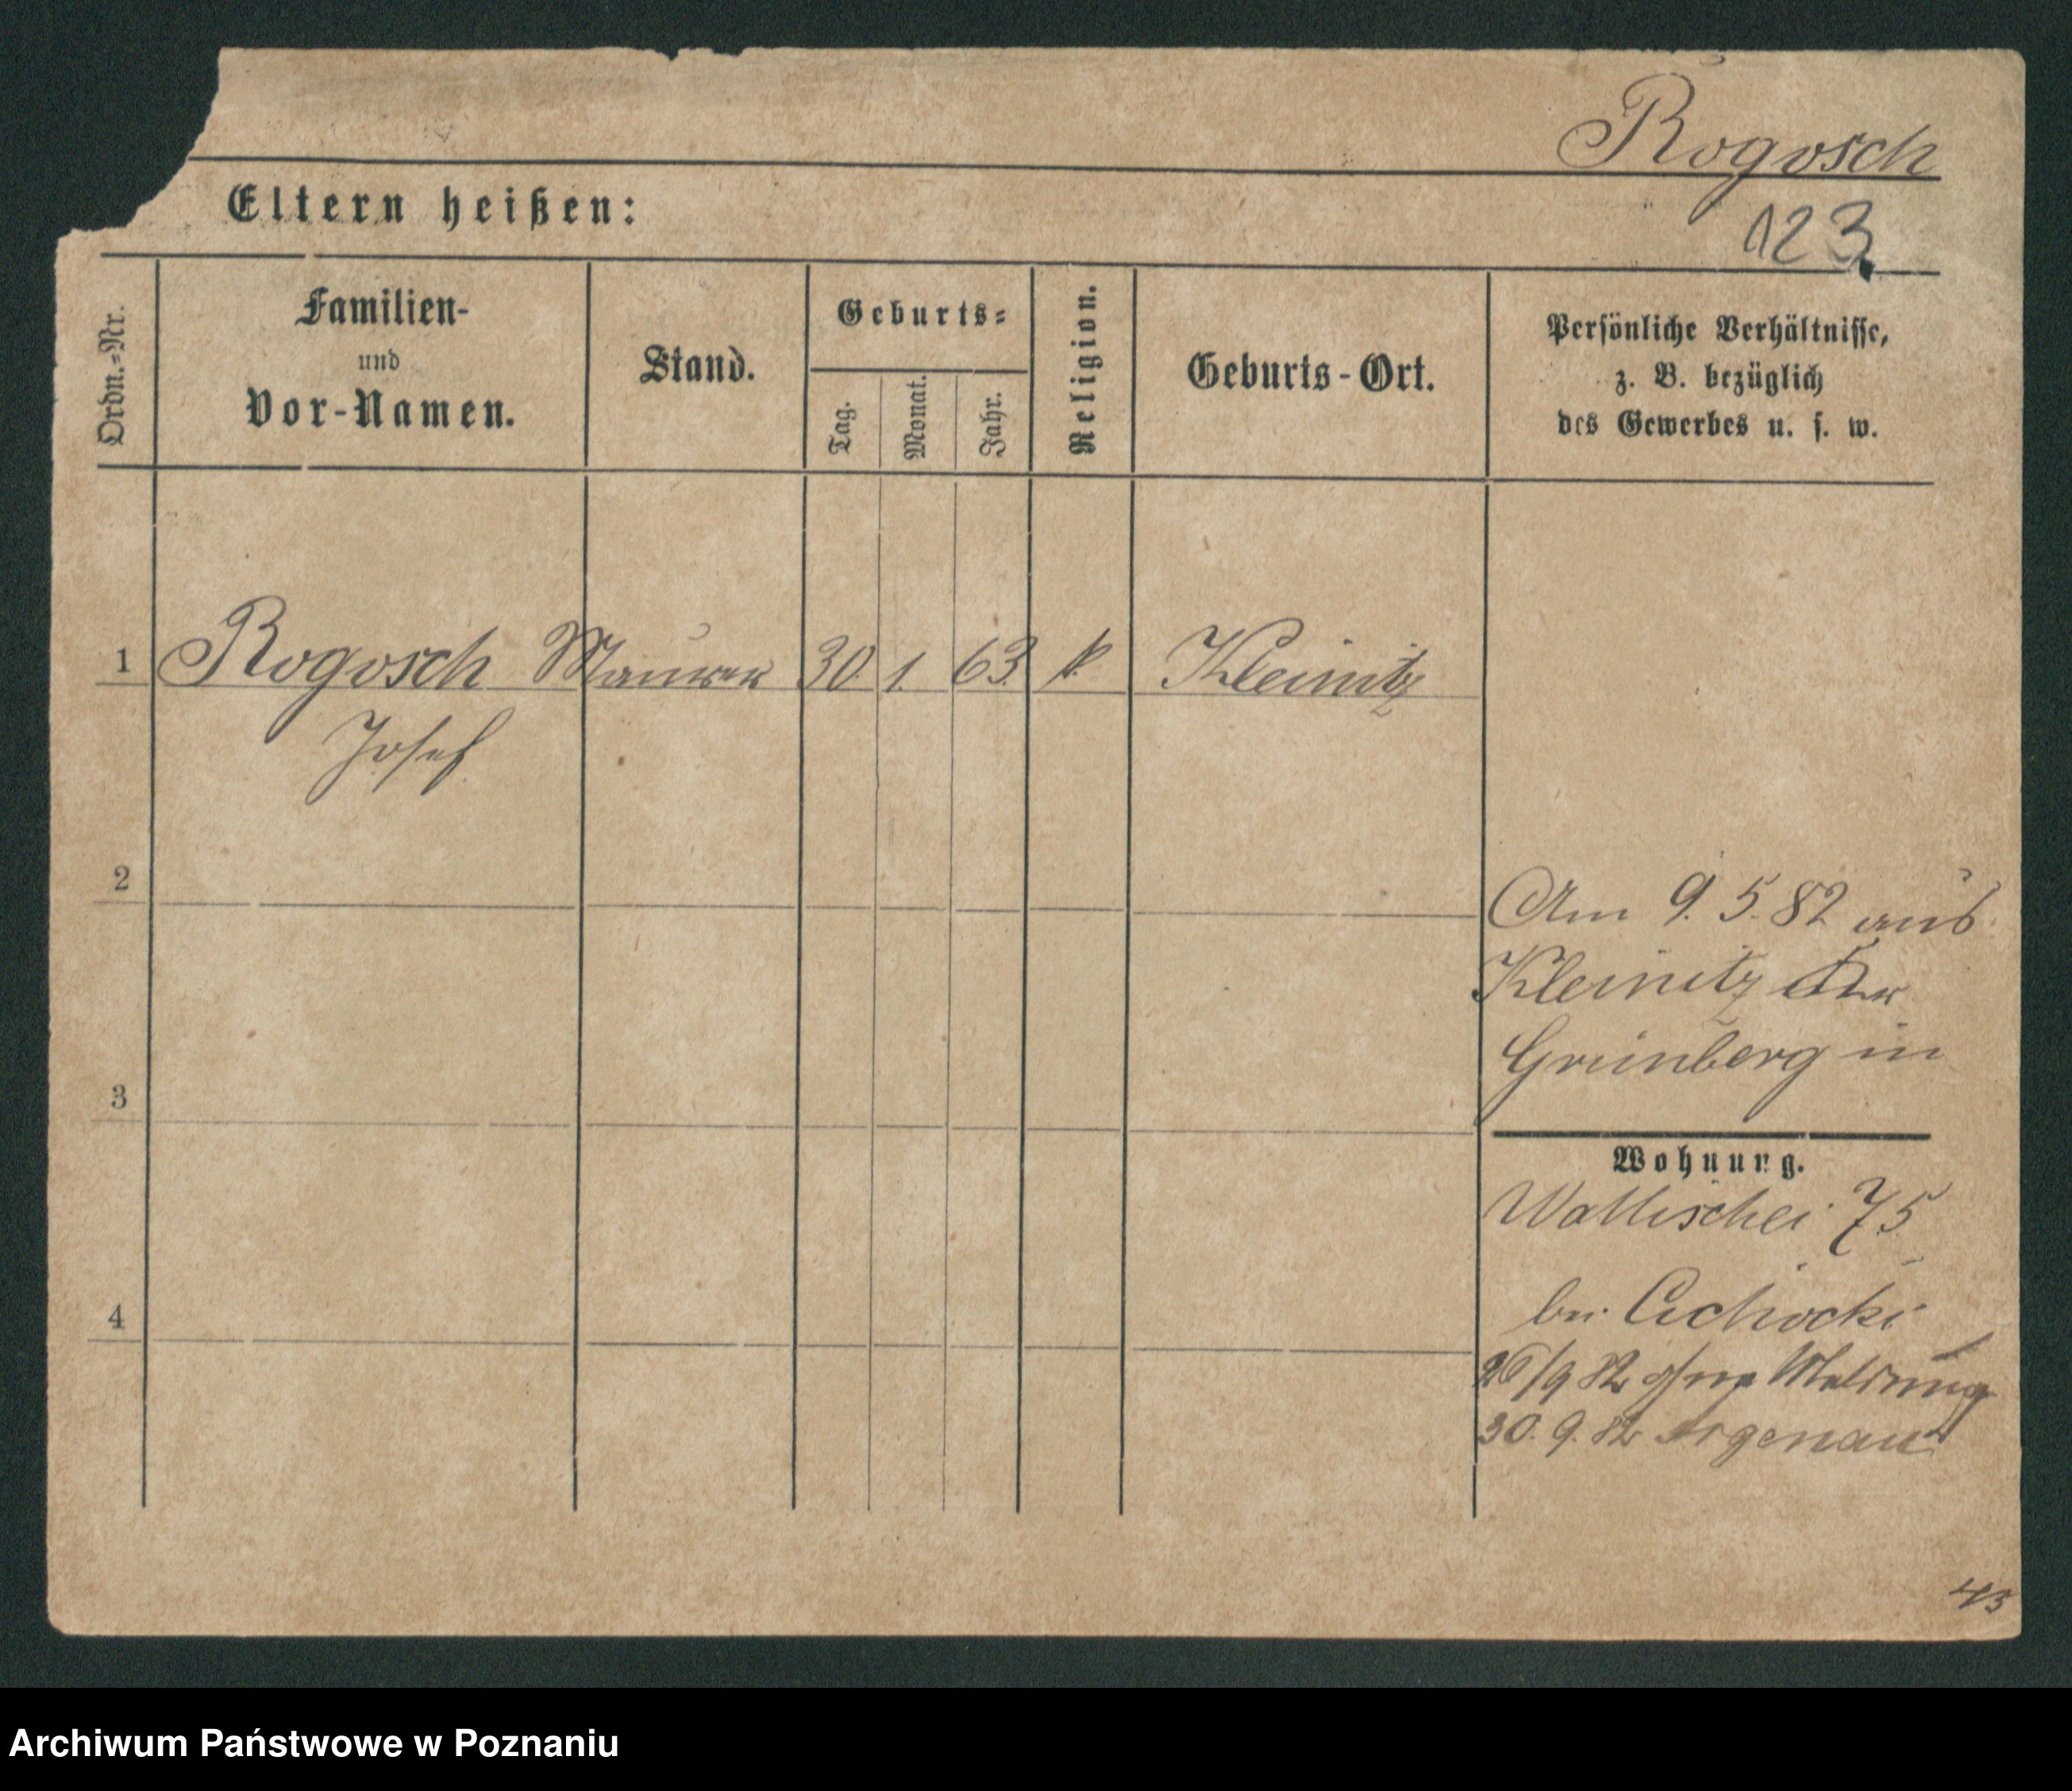 Rogosch
Eltern heißen:
123
Ordn.=Nr.
Familien-
und
Vor-Namen.
Stand.
Geburts=
Tag.
Monat.
Jahr.
Religion.
Geburts-Ort.
Persönliche Verhältnisse,
z. B. bezüglich
des Gewerbes u. s. w.
1 Rogosch Maurer 30. 1. 63. k. Kleinitz
Josef
2
Am 9. 5. 82 aus
Kleinitz
Grünberg in
3
Wohnung.
Wallischei 75
bei Cichocki
4
26/9 82 ohne Meldung
30. 9. 82 Argenau
Archiwum Państwowe w Poznaniu